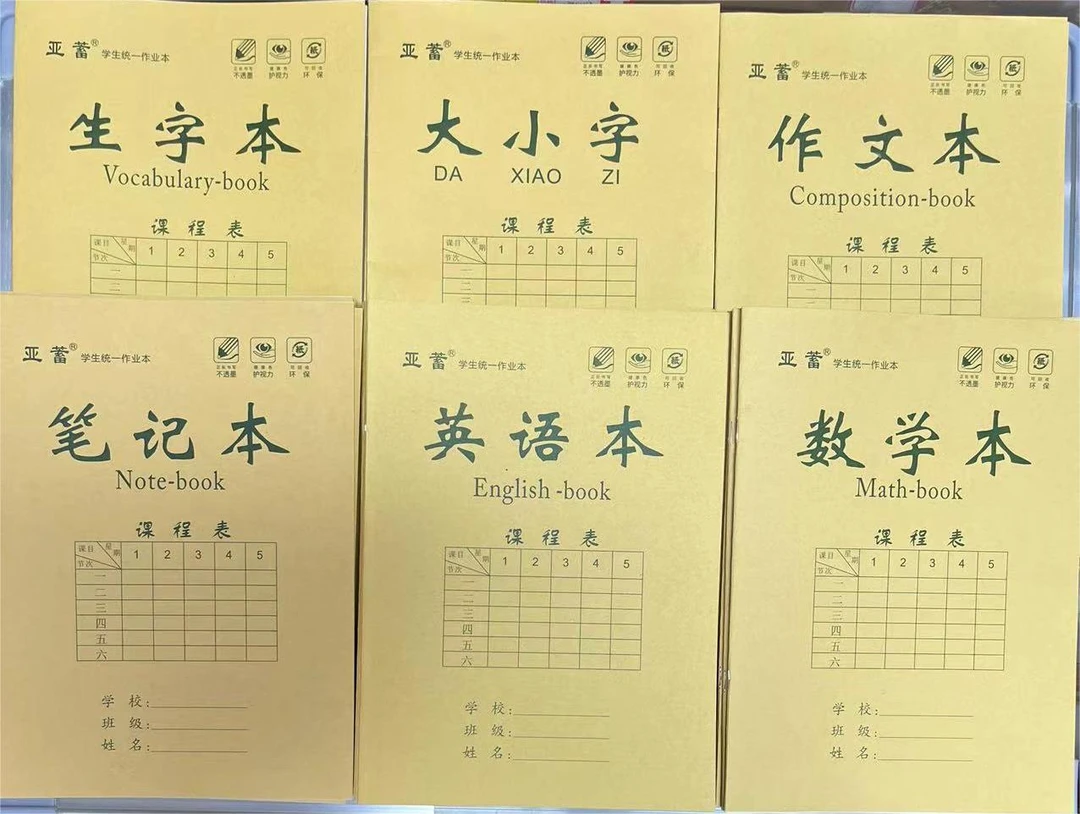 亚蓄® 学生统一作业本
不透墨 护视力 环保
生字本
Vocabulary-book
课程表
课目 星期 节次 1 2 3 4 5
一
二
亚蓄® 学生统一作业本
不透墨 护视力 环保
大小字
DA XIAO ZI
课程表
课目 星期 节次 1 2 3 4 5
一
二
三
亚蓄® 学生统一作业本
不透墨 护视力 环保
作文本
Composition-book
课程表
课目 星期 节次 1 2 3 4 5
一
二
亚蓄® 学生统一作业本
不透墨 护视力 环保
笔记本
Note-book
课程表
课目 星期 节次 1 2 3 4 5
一
二
三
四
五
六
学校:
班级:
姓名:
亚蓄® 学生统一作业本
不透墨 护视力 环保
英语本
English-book
课程表
课目 星期 节次 1 2 3 4 5
一
二
三
四
五
六
学校:
班级:
姓名:
亚蓄® 学生统一作业本
不透墨 护视力 环保
数学本
Math-book
课程表
课目 星期 节次 1 2 3 4 5
一
二
三
四
五
六
学校:
班级:
姓名: